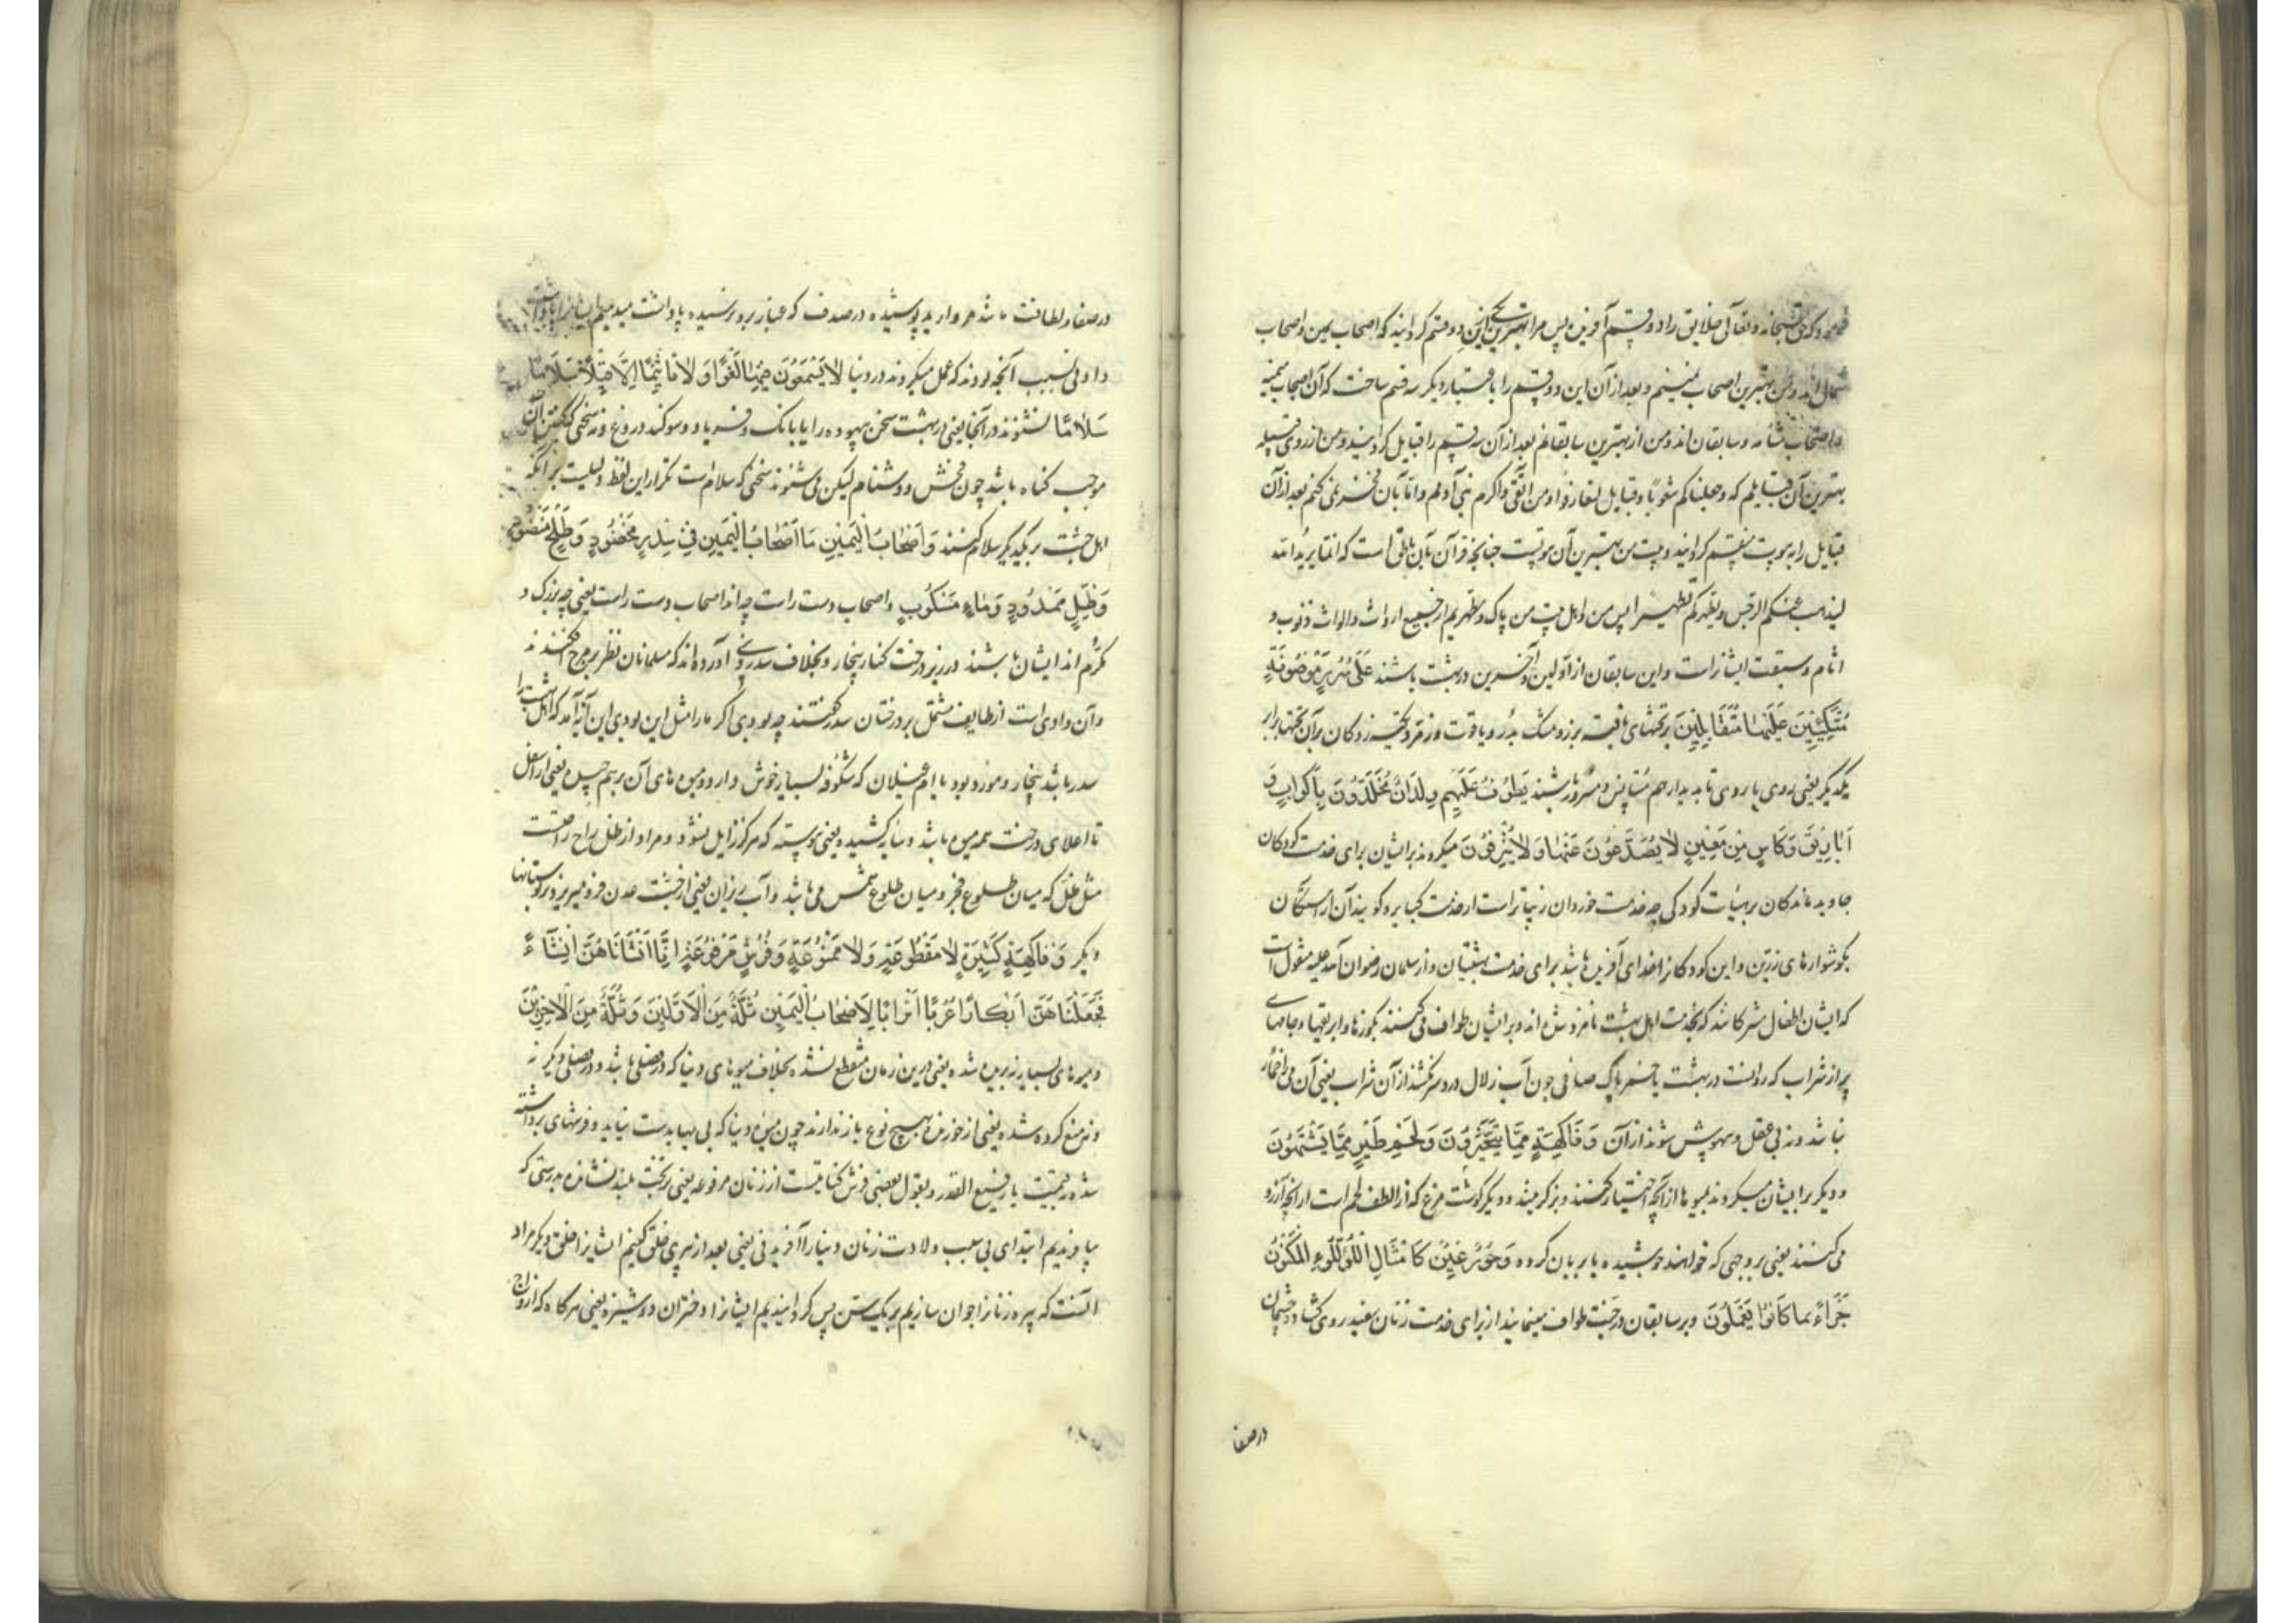 فرمود که حق سبحانه و تعالی خلایق را دو قسم آفریده پس مرا بهترین دو قسم کردانید که اصحاب یمین و اصحاب
شمال اند و من بهترین اصحاب یمینم و بعد از آن این دو قسم را باعتبار دیکر سه قسم ساخت که آن اصحاب میمنه
و اصحاب مشأمه و سابقان اند و من از بهترین سابقانم بعد از آن سه قسم را قبایل کردانید و من از روی قبیله
بهترین آن قبایلم که وجعلناکم شعوبا وقبایل لتعارفوا و من اتقی و اکرم بنی آدمم و اما بآن فخر نمی کنم بعد از آن
قبایل را به بیوت منقسم کردانید و بیت من بهترین آن بیوتست چنانچه قرآن بآن ناطق است که انما یرید الله
لیذهب عنکم الرجس ویطهرکم تطهیرا پس من و اهل بیت من پاک و مطهریم از جمیع ارواث والواث ذنوب و
اثام و سبقت ایشانراست و این سابقان از اولین و آخرین در بهشت باشند عَلَىٰ سُرُرٍ مَوْضُونَةٍ
مُتَّكِئِينَ عَلَيْهَا مُتَقَابِلِينَ بر تختهای بافته بزر و مشبک بدر و یاقوت و زمرد تکیه زدکان بر آن تختها برابر
یکدیکر یعنی روی با روی تا بدیدار هم مستانس و مسرور باشند يَطُوفُ عَلَيْهِمْ وِلْدَانٌ مُخَلَّدُونَ بِأَكْوَابٍ وَ
أَبَارِيقَ وَكَأْسٍ مِنْ مَعِينٍ لَا يُصَدَّعُونَ عَنْهَا وَلَا يُنْزِفُونَ میکردند بر ایشان برای خدمت کودکان
جاوید ماندکان بر هیئات کودکی چه خدمت خوردان زیباتر است از خدمت کبار و کویند آن آراستکان
بکوشوارهای زرین و این کودکانرا خدای آفریده باشد برای خدمت بهشتیان و از سلمان رضوان الله علیه منقول است
که ایشان اطفال مشرکانند که بخدمت اهل بهشت نامزد شده اند و بر ایشان طواف می کنند بکوزها و ابریقها و جامهای
پر از شراب که روانست در بهشت یا خمر پاک صافی چون آب زلال درد سر نکشند از آن شراب یعنی آن می را خمار
نباشد و نه بی عقل و بیهوش شوند از آن وَفَاكِهَةٍ مِمَّا يَتَخَيَّرُونَ وَلَحْمِ طَيْرٍ مِمَّا يَشْتَهُونَ
و دیکر بر ایشان میکردند بمیوها از آنچه اختیار کنند و برکزینند و دیکر کوشت مرغ که از الطف لحم است از آنچه آرزو
می کنند یعنی بر وجهی که خواهند جوشیده یا بریان کرده وَحُورٌ عِينٌ كَأَمْثَالِ اللُّؤْلُؤِ الْمَكْنُونِ
جَزَاءً بِمَا كَانُوا يَعْمَلُونَ و بر سابقان در جنت طواف مینمایند از برای خدمت زنان سفید روی کشاده چشمان
در صفا
در صفا و لطافت مانند مروارید پوشیده در صدف که غبار برو نرسیده پاداشت میدهیم ایشانرا پاداشت
دادنی بسبب آنچه بودند که عمل میکردند در دنیا لَا يَسْمَعُونَ فِيهَا لَغْوًا وَلَا تَأْثِيمًا إِلَّا قِيلًا سَلَامًا
سَلَامًا نشنوند در آنجا یعنی در بهشت سخن بیهوده را یا بانک و فریاد و سوکند دروغ و نه سخنی که کفتن آن
موجب کناه باشد چون فحش و دشنام لیکن می شنوند سخنی که سلام است تکرار این لفظ دلیلست بر آنکه
اهل جنت بر یکدیکر سلام کنند وَأَصْحَابُ الْيَمِينِ مَا أَصْحَابُ الْيَمِينِ فِي سِدْرٍ مَخْضُودٍ وَطَلْحٍ مَنْضُودٍ
وَظِلٍّ مَمْدُودٍ وَمَاءٍ مَسْكُوبٍ و اصحاب دست راست چه اند اصحاب دست راست یعنی چه بزرک و
مکرم اند ایشان باشند در زیر درخت کنار بیخار و بخلاف سدر دنیا آورده اند که مسلمانان نظر بر وج افکندند
و آن وادی است از طایف مشتمل بر درختان سدر کفتند چه بودی اکر ما را مثل این بودی این آیه آمد که اهل بهشت را
سدر باشد بیخار و موز بود یا ام غیلان که شکوفه بسیار خوش دارد و میوه های آن بر هم چیده یعنی از اسفل
تا اعلای درخت همه میوه باشد و سایه کشیده یعنی پیوسته که هرکز زایل نشود و مراد از ظل راحتست
مثل ظل که میان طلوع فجر و میان طلوع شمس می باشد و آب ریزان یعنی از جنت عدن فرو میریزد بر بوستانها
دیکر وَفَاكِهَةٍ كَثِيرَةٍ لَا مَقْطُوعَةٍ وَلَا مَمْنُوعَةٍ وَفُرُشٍ مَرْفُوعَةٍ إِنَّا أَنْشَأْنَاهُنَّ إِنْشَاءً
فَجَعَلْنَاهُنَّ أَبْكَارًا عُرُبًا أَتْرَابًا لِأَصْحَابِ الْيَمِينِ ثُلَّةٌ مِنَ الْأَوَّلِينَ وَثُلَّةٌ مِنَ الْآخِرِينَ
و میوهای بسیار نه بریده شده یعنی درین زمان منقطع نشده بخلاف میوهای دنیا که در فصلی باشد و در فصلی دیکر نه
و نه منع کرده شده یعنی از خوردن بهیچ نوع باز ندارند چون میوه دنیا که بی بها بدست نیاید و فرشهای برداشته
شده در قیمت یا رفیع القدر و بقول بعضی فرش کنایتست از زنان مرفوعه یعنی بر تخت بلند نشانده بدرستی که
بیافریدیم ابتدای بی سبب ولادت زنان دنیا را آفریدنی یعنی بعد از پیری خلق کنیم ایشانرا خلق دیکر مراد
آنست که پیره زنانرا جوان سازیم بر یک سن پس کردانیدیم ایشانرا دختران دوشیزه یعنی هرکاه که ازواج